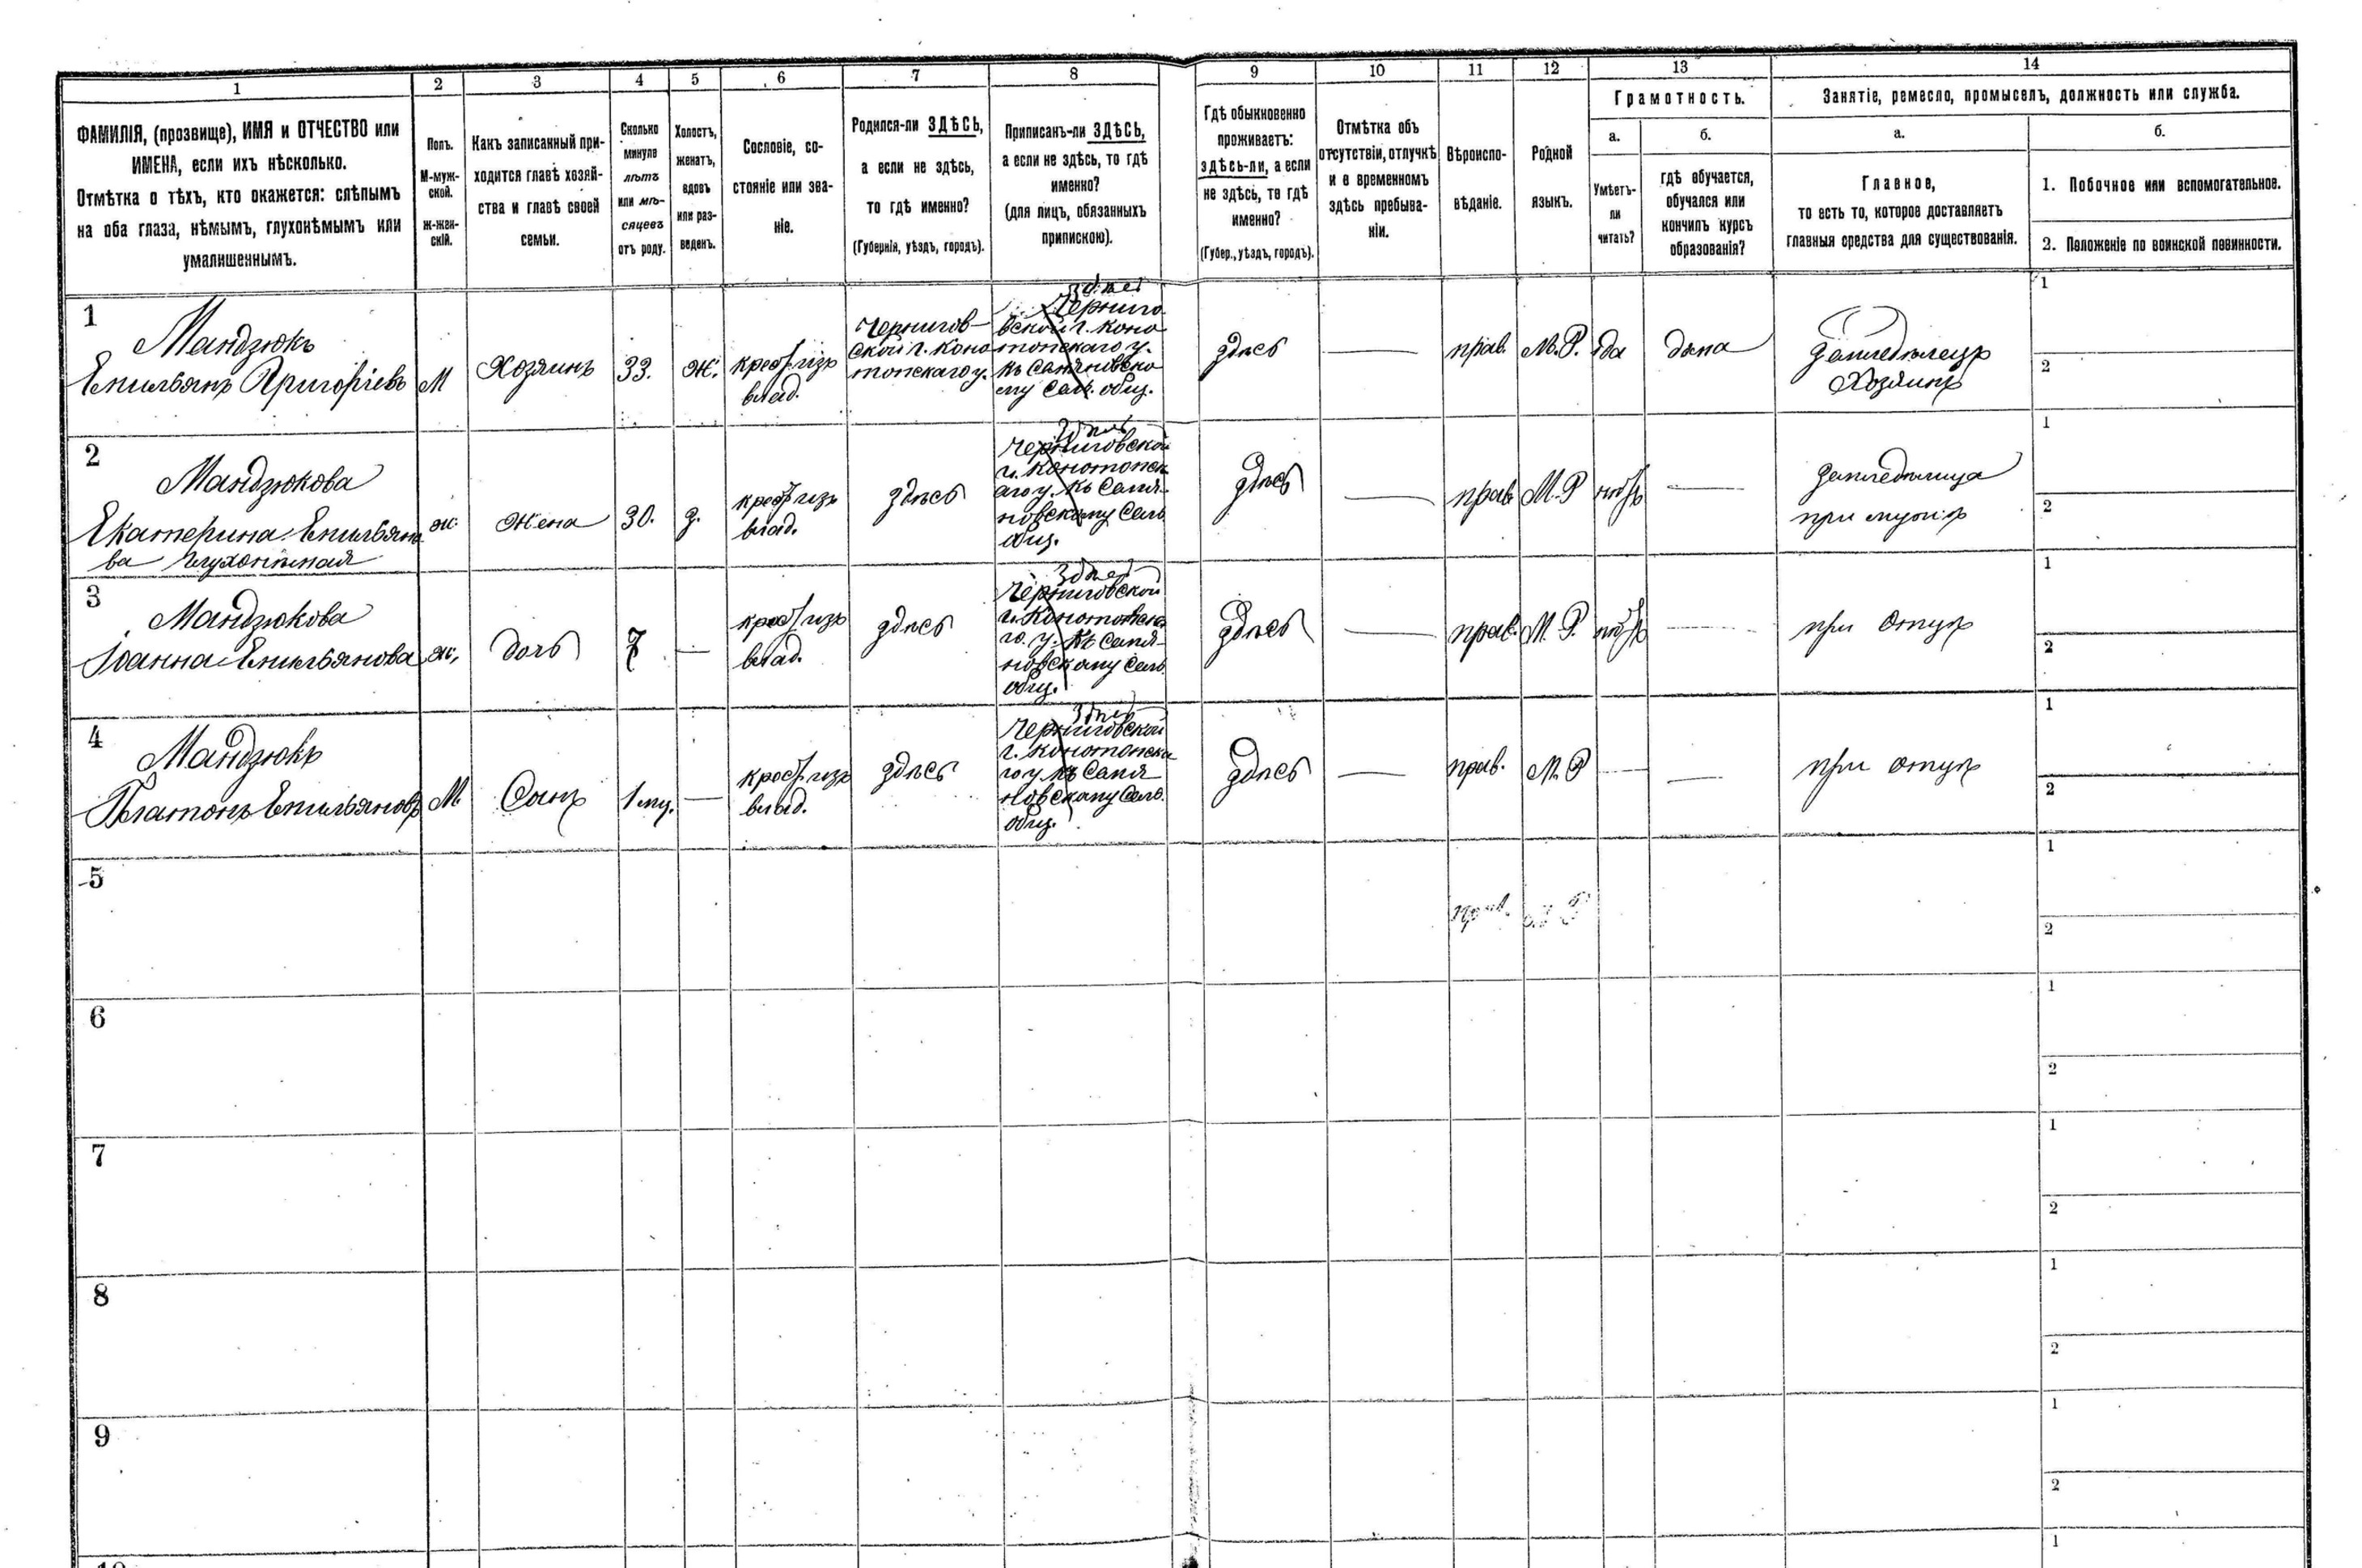 1
2
3
4
5
6
7
8
9
10
11
12
13
14
ФАМИЛІЯ, (прозвище), ИМЯ и ОТЧЕСТВО или
ИМЕНА, если ихъ нѣсколько.
Отмѣтка о тѣхъ, кто окажется: слѣпымъ
на оба глаза, нѣмымъ, глухонѣмымъ или
умалишеннымъ.
Полъ.
М-муж-
ской.
Ж-жен-
скій.
Какъ записанный при-
ходится главѣ хозяй-
ства и главѣ своей
семьи.
Сколько
минуло
лѣтъ
или мѣ-
сяцевъ
отъ роду.
Холостъ,
женатъ,
вдовъ
или раз-
веденъ.
Сословіе, со-
стояніе или зва-
ніе.
Родился-ли ЗДѢСЬ,
а если не здѣсь,
то гдѣ именно?
(Губернія, уѣздъ, городъ).
Приписанъ-ли ЗДѢСЬ,
а если не здѣсь, то гдѣ
именно?
(для лицъ, обязанныхъ
припискою).
Гдѣ обыкновенно
проживаетъ:
здѣсь-ли, а если
не здѣсь, то гдѣ
именно?
(Губер., уѣздъ, городъ).
Отмѣтка объ
отсутствіи, отлучкѣ
и о временномъ
здѣсь пребыва-
ніи.
Вѣроиспо-
вѣданіе.
Родной
языкъ.
Грамотность.
а.
Умѣетъ-
ли
читать?
б.
гдѣ обучается,
обучался или
кончилъ курсъ
образованія?
Занятіе, ремесло, промыселъ, должность или служба.
а.
Главное,
то есть то, которое доставляетъ
главныя средства для существованія.
б.
1. Побочное или вспомогательное.
2. Положеніе по воинской повинности.
1
Мандзюкъ
Емильянъ Григоріевъ
М
Хозяинъ
33.
Ж.
крест изъ
влад.
Чернигов-
ской г. Коно
топскаго у.
здѣсь
Черниго
вской г. Коно
топскаго у.
къ Сапяновско
му Сел. общ.
здѣсь
прав.
М.Р.
да
дома
Земледѣлецъ
Хозяинъ
1
2
2
Мандзюкова
Екатерина Емильяно
ва глухонѣмая
ж.
Жена
30.
з.
крест изъ
влад.
здѣсь
здѣсь
Черниговской
г. Конотопск
аго у. Къ Сапя-
новскому Сель
общ.
здѣсь
прав
М.Р
нѣтъ
Земледѣлица
при мужѣ
1
2
3
Мандзюкова
Іоанна Емильянова
ж.
дочь
7
крест изъ
влад.
здѣсь
здѣсь
Черниговской
г. Конотопска
го у. Къ Сапя-
новскому Сель
общ.
здѣсь
прав.
М.Р.
нѣтъ
при отцѣ
1
2
4
Мандзюкъ
Платонъ Емильяновъ
М.
Сынъ
крест изъ
влад.
здѣсь
здѣсь
Черниговской
г. Конотопска
го у. къ Сапя
новскому Сель.
общ.
здѣсь
прав.
М.Р
при отцѣ
1
2
5
прав.
1
2
6
1
2
7
1
2
8
1
2
9
1
2
1